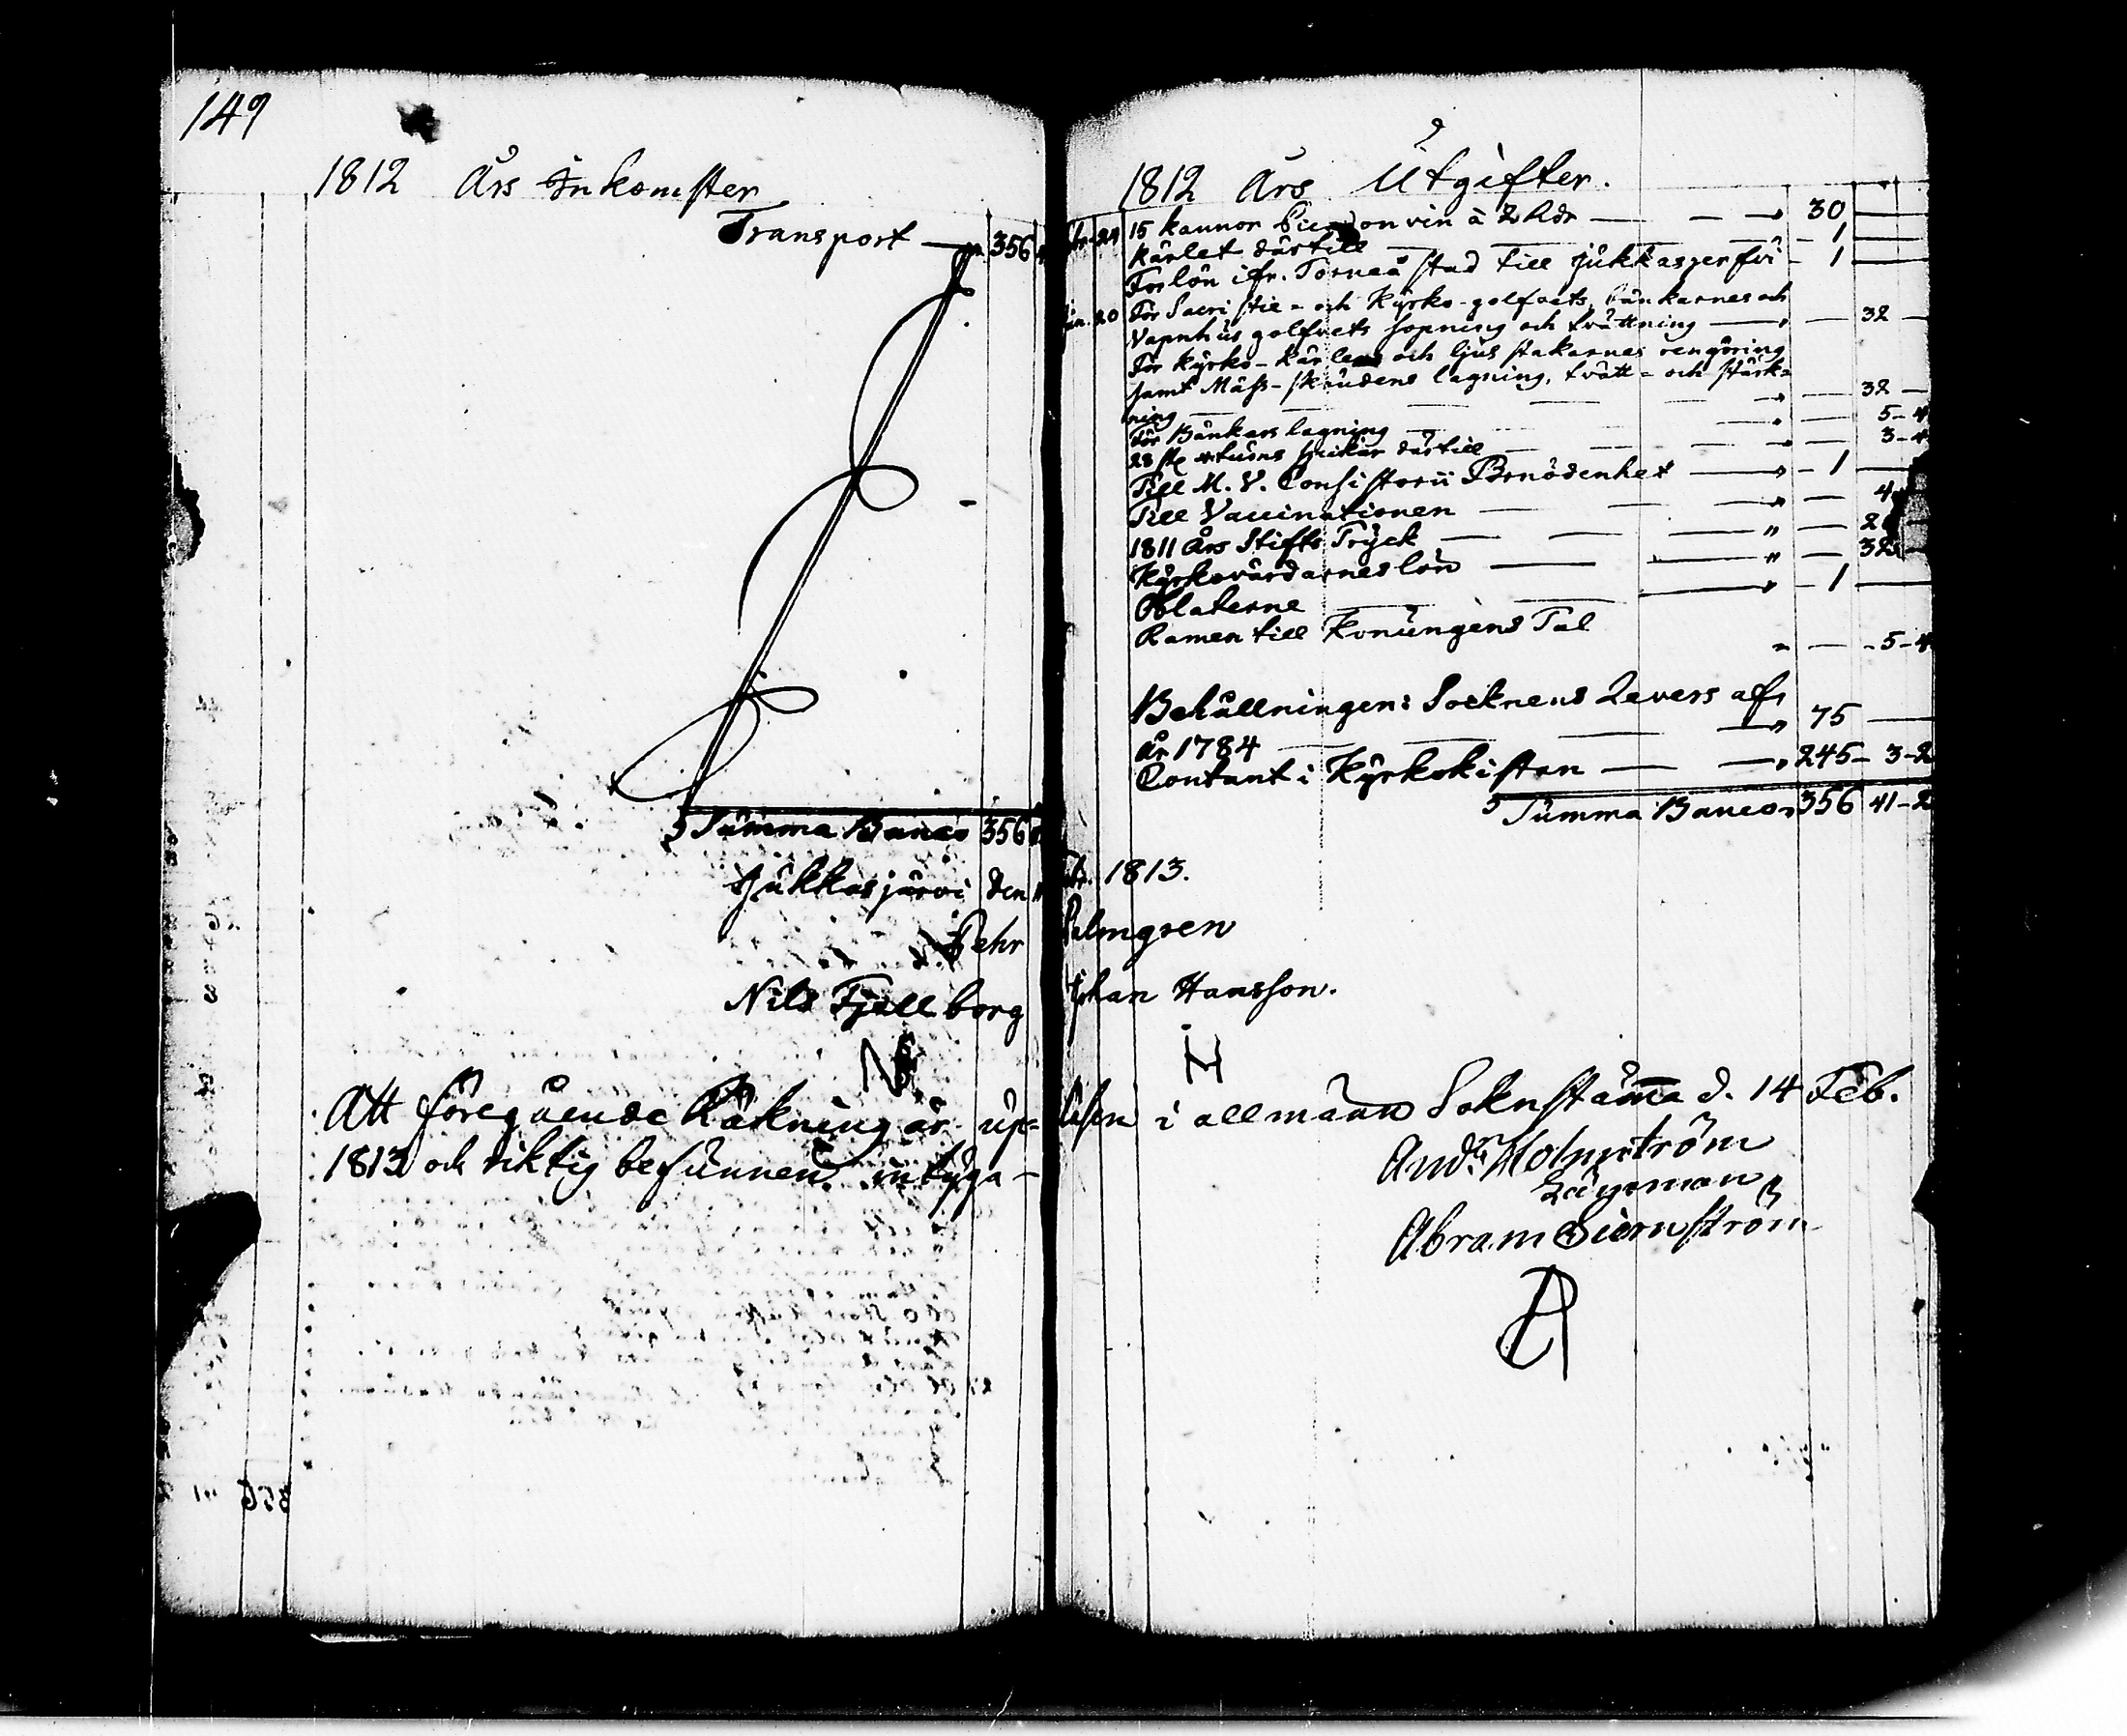 149
1812 Års Inkomster
Transport — 356
Summa Banco 356
Jukkasjärvi den
Pehr
Nils Fjellborg
N
Att föregående Räkning är up-
1813 och riktig befunnen intyga —
1812 Års Utgifter.
24 15 kannor vin à 2 Rdr — — — 30 —
Kärlet därtill — — — 1 —
Forlön ifr. Torneå stad till Jukkasjerfvi — 1 —
20 För Sacristie- och Kyrko-golfvets, bänkarnes och
Vapnhus golfvets sopning och tvättning — — 32 —
För kyrko-kärlens och ljusstakarnes rengöring
samt Mäss-skrudens lagning, tvätt- och stärk-
ning — — — — 32 —
För Bänkars lagning — — — 5-4
28 st. spikar därtill — — — 3-4
Till M. V. Consistorii Förnödenhet — — 1 —
Till Vaccinationen — — — 4
1811 Års Stifts Tryck — — — " — 2
Kyrkovärdarnes lön — — " — 32 —
Oblaterne — — — 1 —
Ramen till Konungens Tal — 5-4
Behållningen: Socknens Revers af
år 1784 — — — 75 —
Contant i Kyrkokistan — — 245- 3-2
Summa Banco 356 41-2
1813.
Palmgren
Johan Hansson.
H
läsen i allmänn Soknstämma d. 14 Feb.
Andr. Holmström
Länsman
Abram Biörnström
A